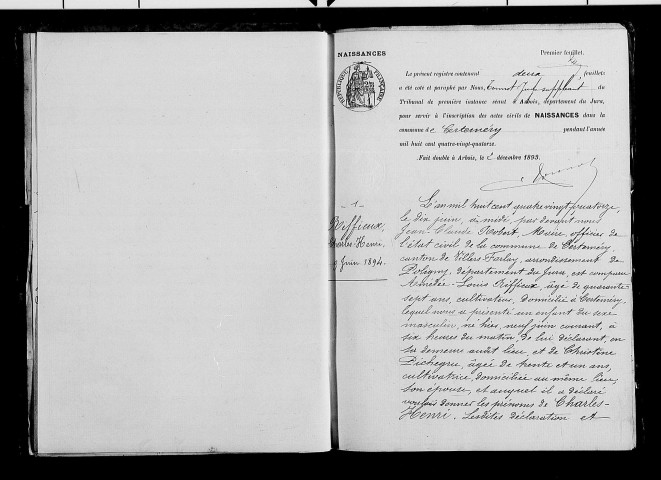 NAISSANCES
RÉPUBLIQUE FRANÇAISE
Premier feuillet.
Le présent registre contenant deux feuillets
a été coté et paraphé par Nous, Juge suppléant du
Tribunal de première instance séant à Arbois, département du Jura,
pour servir à l'inscription des actes civils de NAISSANCES dans la
commune de Certeméry pendant l'année
mil huit cent quatre-vingt-quatorze.
Fait double à Arbois, le décembre 1893.
- 1 -
Riffieux,
Charles-Henri.
9 Juin 1894.
L'an mil huit cent quatre vingt quatorze,
le dix juin, à midi, par devant nous
Jean-Claude Robert, Maire, officier de
l'état civil de la commune de Certeméry
canton de Villers-Farlay, arrondissement de
Poligny, département du Jura, est comparu
Amédée-Louis Riffieux, âgé de quarante-
sept ans, cultivateur, domicilié à Certeméry,
lequel nous a présenté un enfant du sexe
masculin, né hier, neuf juin courant, à
six heures du matin, de lui déclarant, en
sa demeure audit lieu, et de Christine
Pichegru, âgée de trente et un ans,
cultivatrice, domiciliée au même lieu,
son épouse, et auquel il a déclaré
vouloir donner les prénoms de Charles-
Henri. Lesdites déclaration et